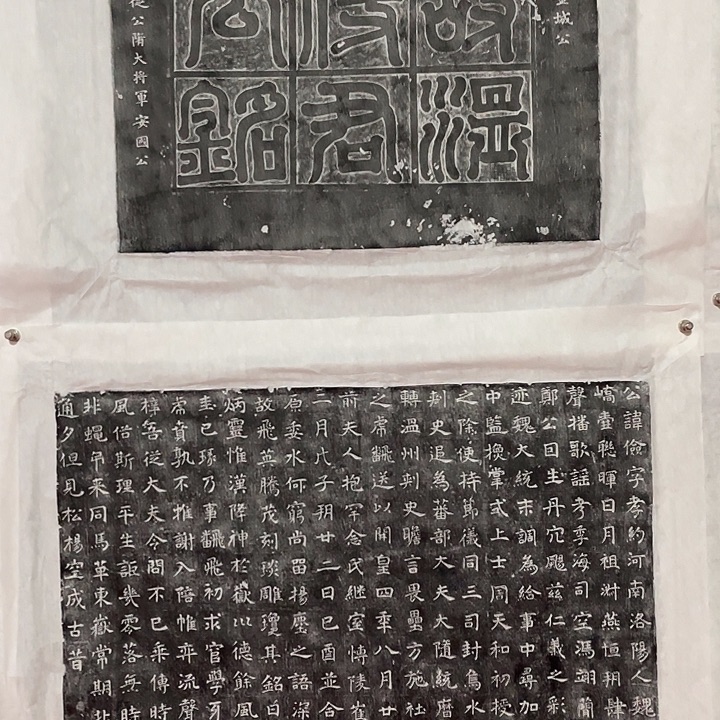 城公
温
君
銘
公隋大将軍安國公
公諱儉字孝約河南洛陽人魏
嶠臺聯暉日月祖澍燕恒朔肆
聲播歌謠考季海司空馮翊簡
鄭公曰生丹穴颺茲仁義之彩
迹魏大統末調為給事中尋加
中監換掌式上士周天和初授
之除使持節儀同三司封烏水
刺史追為蕃部大夫大隨統曆
轉溫州刺史瞻言畏壘方施社
之席翻送以開皇四年八月廿
前夫人抱罕念氏繼室博陵崔
二月戊子朔廿二日己酉並合
原委水何窮尚留揚壓之語深
故飛英騰茂刻琰雕瓊其銘曰
炳靈惟漢降神於嶽以德餘風
圭已琢乃事翻飛初求官學牙
席賁孰不推謝入陪帷弈流聲
樟奄從大夫令問不已乘傳時
風俗斯理平生詎幾零落無時
非蠅弔來同馬革東嶽常期北
通夕但見松楊空成古昔